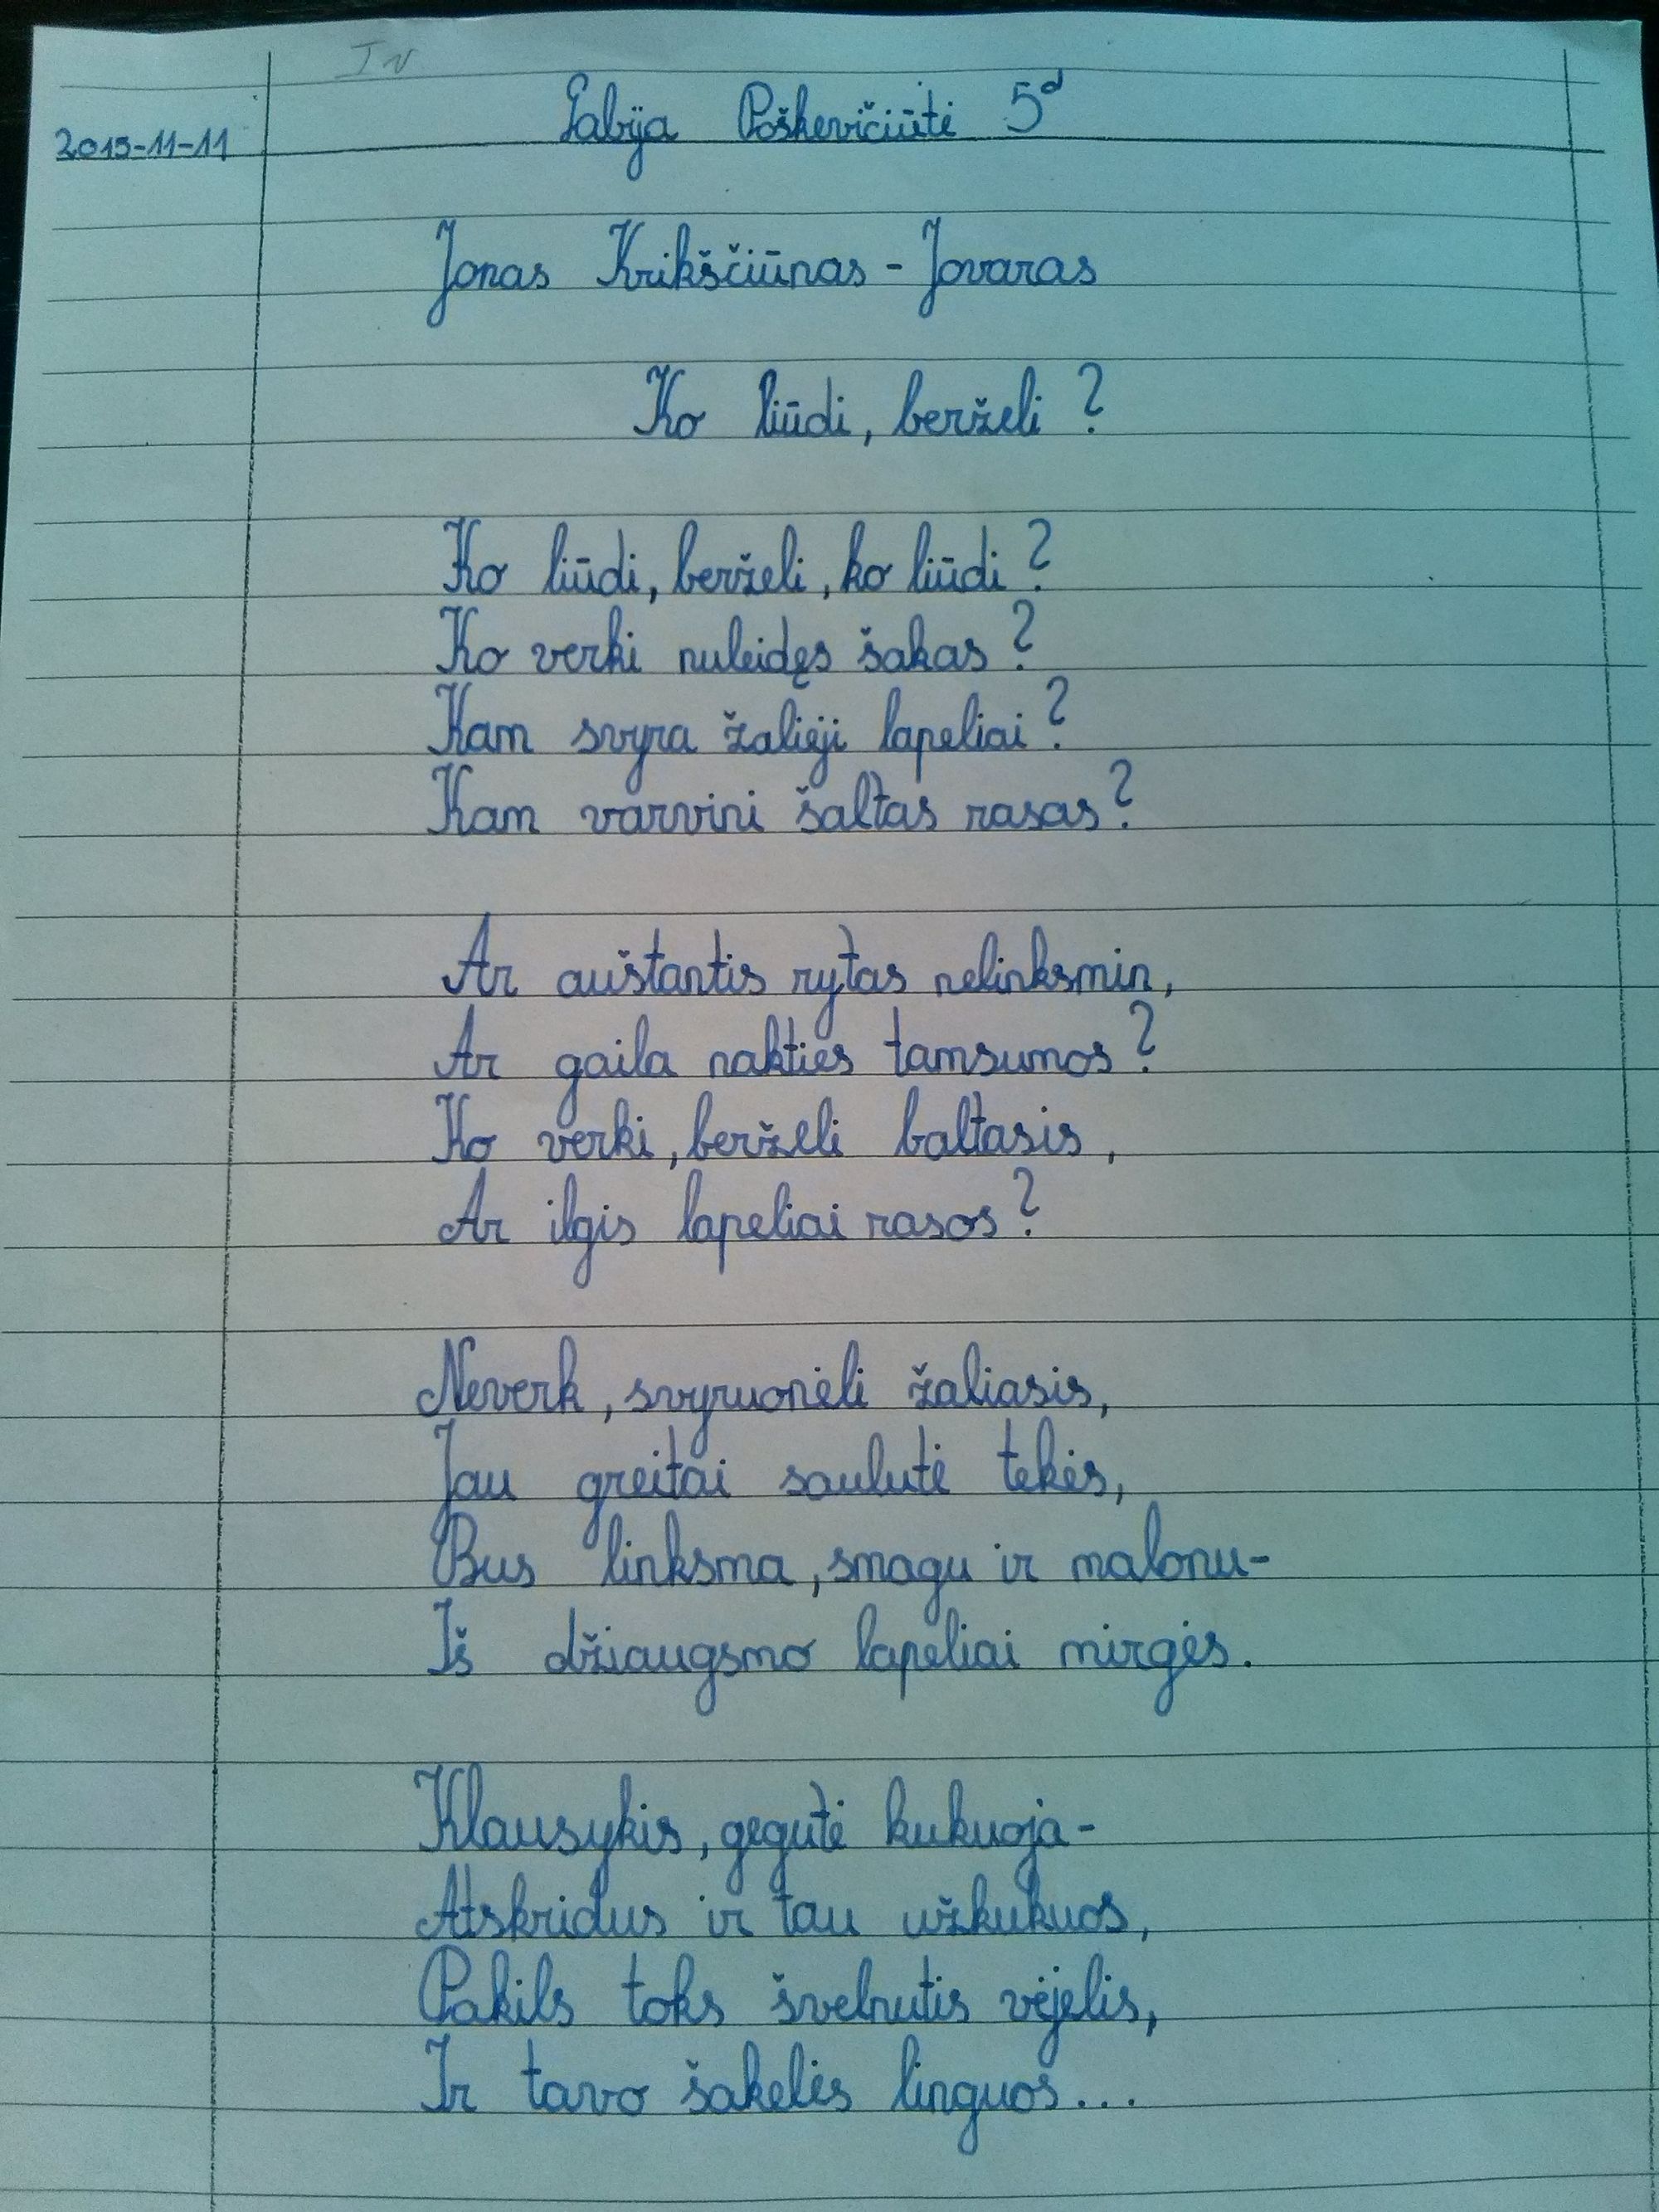 IV
Gabija Poškevičiūtė 5d
2015-11-11
Jonas Krikščiūnas - Jovaras
Ko liūdi, berželi ?
Ko liūdi, berželi, ko liūdi ?
Ko verki nuleidęs šakas ?
Kam svyra žalieji lapeliai ?
Kam varvini šaltas rasas ?
Ar auštantis rytas nelinksmin,
Ar gaila nakties tamsumos ?
Ko verki, berželi baltasis,
Ar ilgis lapeliai rasos ?
Neverk, svyruonėli žaliasis,
Jau greitai saulutė tekės,
Bus linksma, smagu ir malonu-
Iš džiaugsmo lapeliai mirgės.
Klausykis, gegutė kukuoja-
Atskridus ir tau užkukuos,
Pakils toks švelnutis vėjelis,
Ir tavo šakelės linguos...